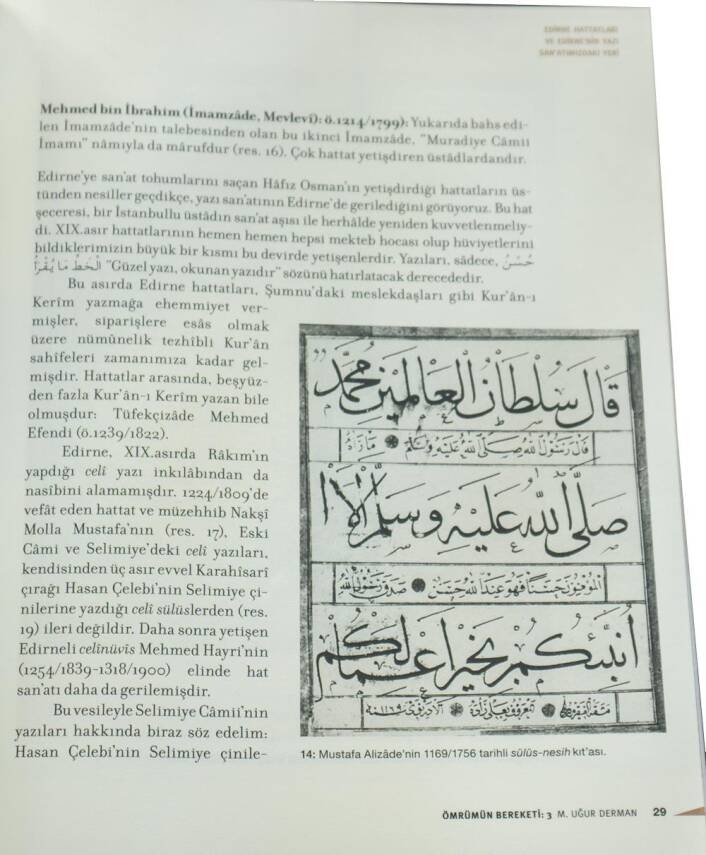 EDİRNE HATTATLARI
VE EDİRNE'NİN YAZI
SAN'ATIMIZDAKİ YERİ
Mehmed bin İbrahim (İmamzâde, Mevlevî): ö.1214/1799): Yukarıda bahs edi-
len İmamzâde'nin talebesinden olan bu ikinci İmamzâde, "Muradiye Câmii
İmamı" nâmıyla da mârufdur (res. 16). Çok hattat yetişdiren üstâdlardandır.
Edirne'ye san'at tohumlarını saçan Hâfız Osman'ın yetişdirdiği hattatların üs-
tünden nesiller geçdikçe, yazı san'atının Edirne'de gerilediğini görüyoruz. Bu hat
şeceresi, bir İstanbullu üstâdın san'at aşısı ile herhâlde yeniden kuvvetlenmeliy-
di. XIX.asır hattatlarının hemen hemen hepsi mekteb hocası olup hüviyetlerini
bildiklerimizin büyük bir kısmı bu devirde yetişenlerdir. Yazıları, sâdece, حُسْنُ
الْخَطِّ مَا يُقْرَأُ "Güzel yazı, okunan yazıdır" sözünü hatırlatacak derecededir.
Bu asırda Edirne hattatları, Şumnu'daki meslekdaşları gibi Kur'ân-ı
Kerîm yazmağa ehemmiyet ver-
mişler, siparişlere esâs olmak
üzere nümûnelik tezhîbli Kur'ân
sahîfeleri zamanımıza kadar gel-
mişdir. Hattatlar arasında, beşyüz-
den fazla Kur'ân-ı Kerîm yazan bile
olmuşdur: Tüfekçizâde Mehmed
Efendi (ö.1239/1822).
Edirne, XIX.asırda Râkım'ın
yapdığı celî yazı inkılâbından da
nasîbini alamamışdır. 1224/1809'de
vefât eden hattat ve müzehhib Nakşî
Molla Mustafa'nın (res. 17), Eski
Câmi ve Selimiye'deki celî yazıları,
kendisinden üç asır evvel Karahîsarî
çırağı Hasan Çelebi'nin Selimiye çi-
nilerine yazdığı celî sülüslerden (res.
19) ileri değildir. Daha sonra yetişen
Edirneli celînüvîs Mehmed Hayri'nin
(1254/1839-1318/1900) elinde hat
san'atı daha da gerilemişdir.
Bu vesileyle Selimiye Câmii'nin
yazıları hakkında biraz söz edelim:
Hasan Çelebi'nin Selimiye çinile-
قَالَ سُلْطَانُ الْعَالَمِينَ مُحَمَّد
قَالَ رَسُولُ اللّٰهِ صَلَّى اللّٰهُ عَلَيْهِ وَسَلَّمَ مَا رَآهُ
صَلَّى اللّٰهُ عَلَيْهِ وَسَلَّمَ أَلَا
الْمُؤْمِنُونَ حَسَنًا فَهُوَ عِنْدَ اللّٰهِ حَسَنٌ صَدَقَ رَسُولُ اللّٰهِ
أُنَبِّئُكُمْ بِخَيْرِ أَعْمَالِكُمْ
14: Mustafa Alizâde'nin 1169/1756 tarihli sülüs-nesih kıt'ası.
ÖMRÜMÜN BEREKETİ: 3 M. UĞUR DERMAN 29